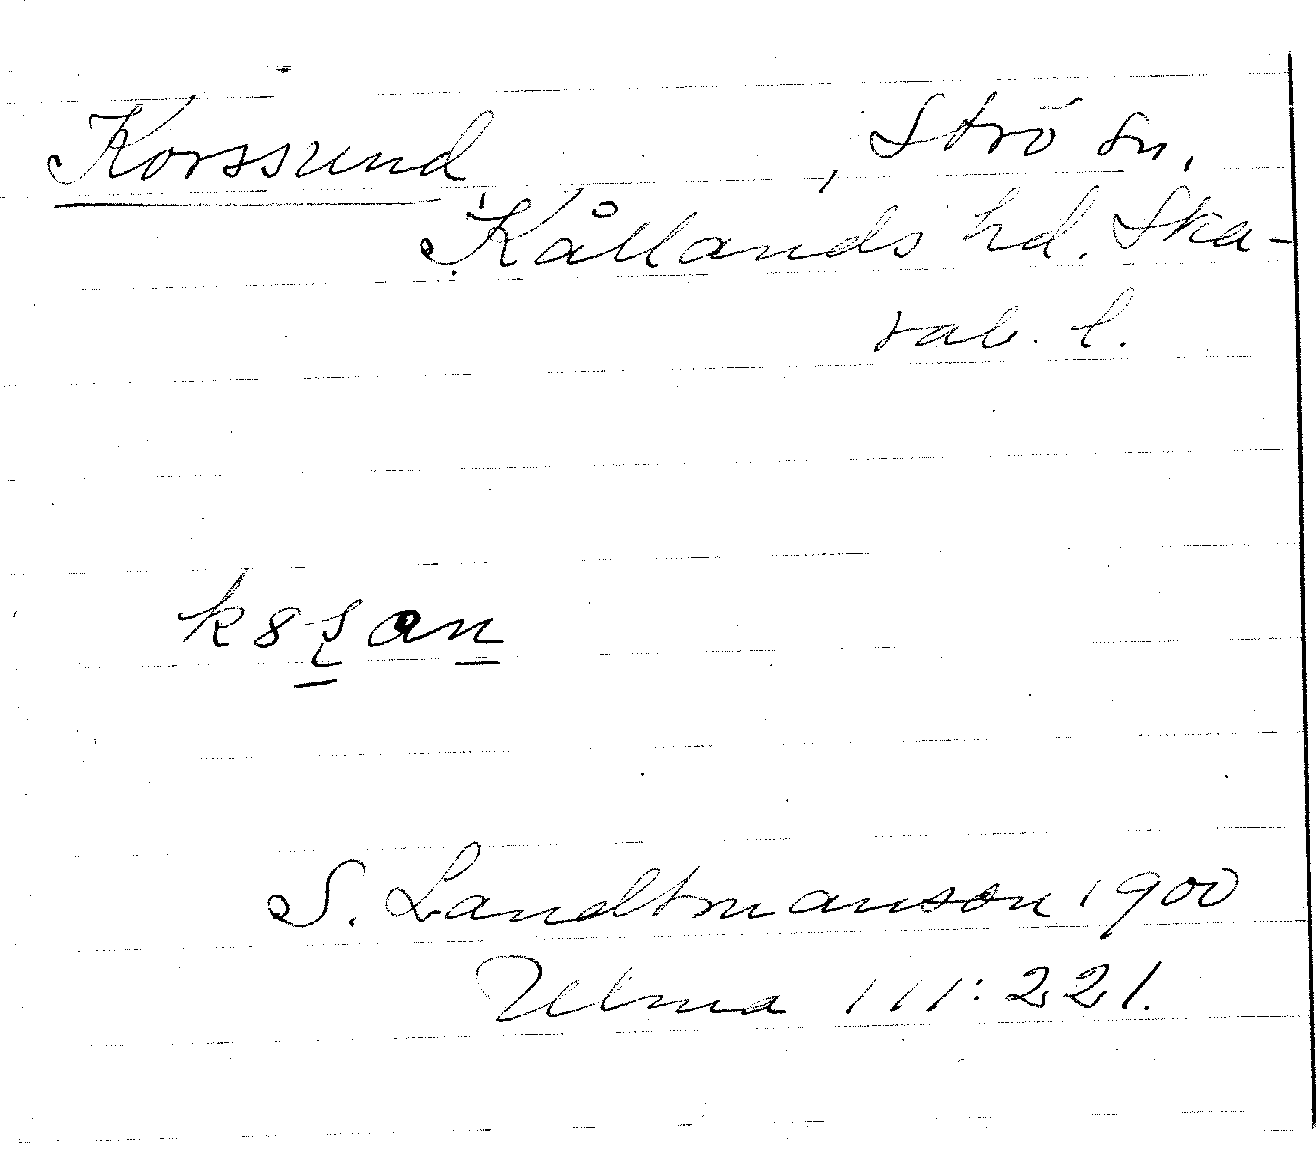 Korssund , Strö sn.
Kållands hd. Ska-
rab. l.
S. Landtmanson 1900
Ulma 111:221.